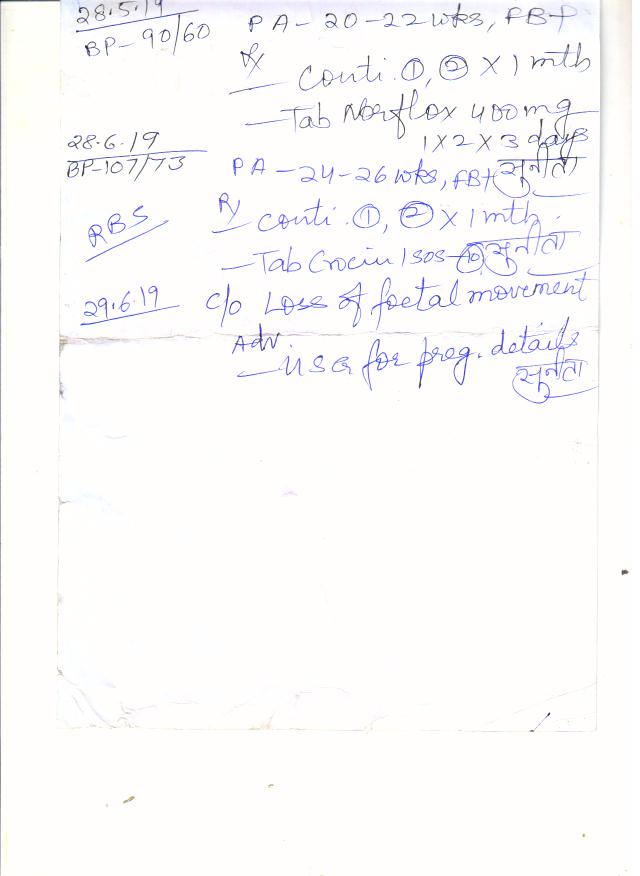 28.5.19
BP- 90/60 PA- 20-22 wks, FB+
Rx
Conti. ①, ② X 1 mth
- Tab Norflox 400mg
1 X 2 X 3 days
28.6.19
BP-107/73 PA-24-26 wks, FB+ सुनीता
RBS Rx Conti. ①, ② X 1 mth.
- Tab Crocin 1 sos सुनीता
29.6.19 c/o Loss of foetal movement
Adv.
- USG for preg. details
सुनीता